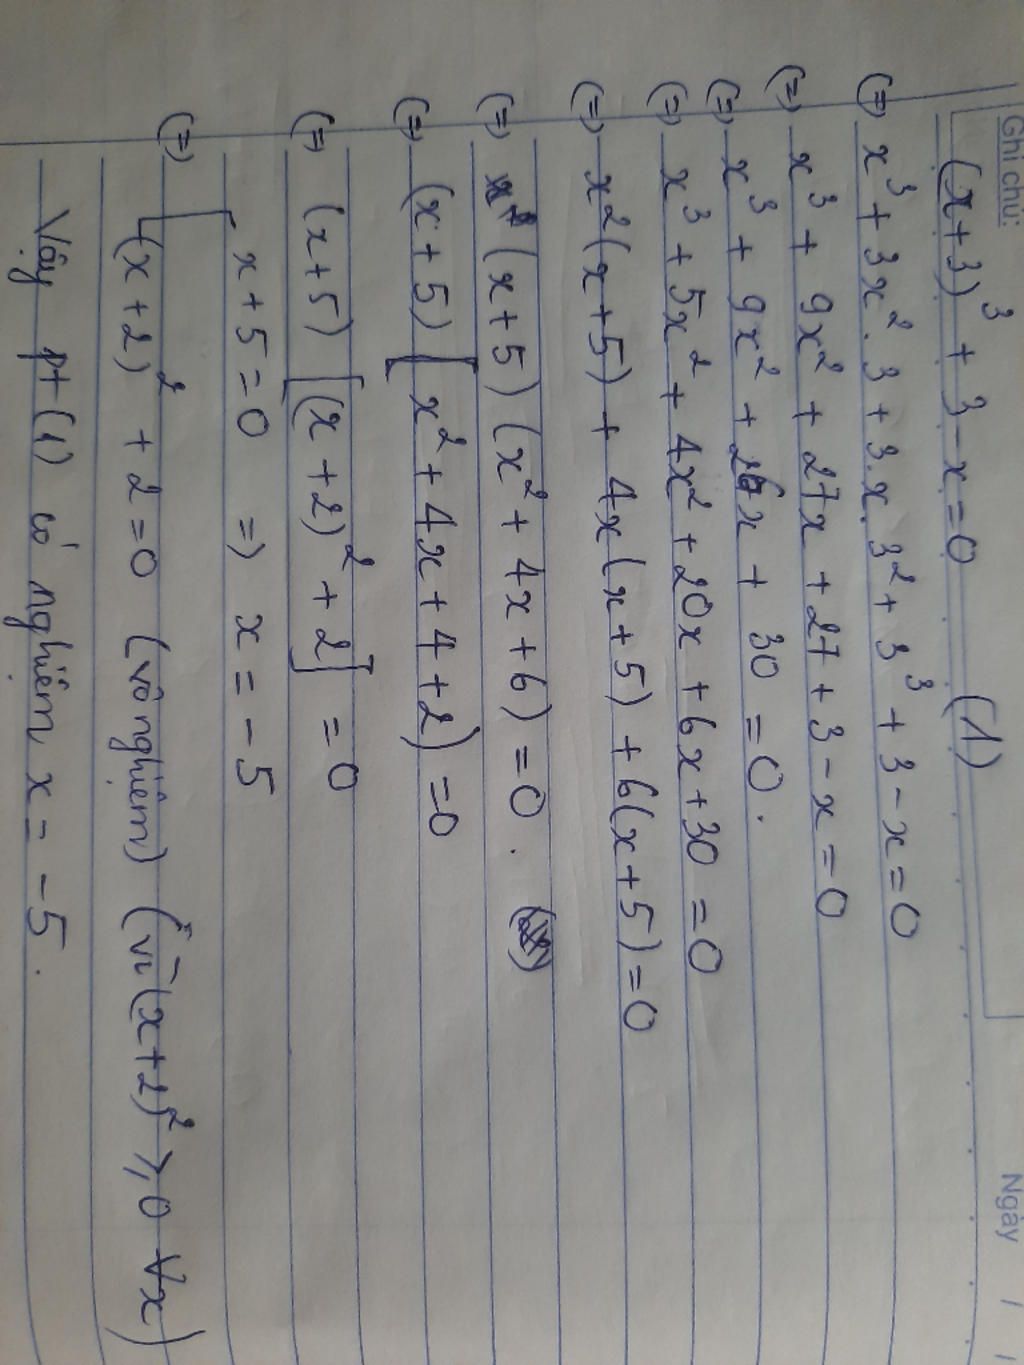 Ghi chú:
Ngày / /
(x+3)³ + 3 - x = 0 (1)
(=) x³ + 3x². 3 + 3.x. 3² + 3³ + 3 - x = 0
(=) x³ + 9x² + 27x + 27 + 3 - x = 0
(=) x³ + 9x² + 26x + 30 = 0.
(=) x³ + 5x² + 4x² + 20x + 6x + 30 = 0
(=) x²(x+5) + 4x(x+5) + 6(x+5) = 0
(=) (x+5) (x² + 4x + 6) = 0.
(=) (x+5) [x² + 4x + 4 + 2) = 0
(=) (x+5) [(x+2)² + 2] = 0
(=) [ x + 5 = 0 => x = -5
(x+2)² + 2 = 0 (vô nghiệm) (vì (x+2)² ≥ 0 ∀x)
Vậy pt (1) có nghiệm x = -5.